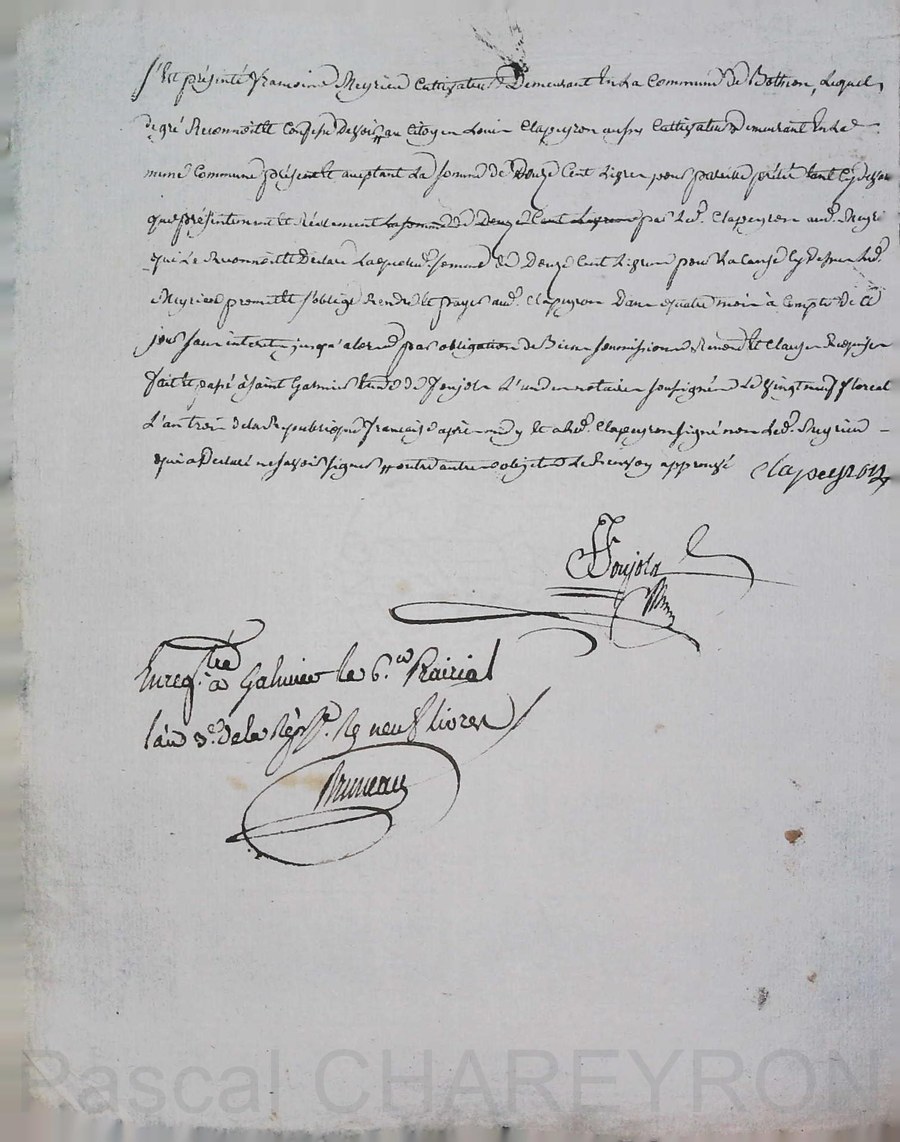 S'est présenté François Meyrieu Cultivateur Demeurant En La Commune de Bothion, Lequel
de gré Reconnoit et Confesse Devoir au Citoyen Louis Clapeyron aussy Cultivateur demeurant En La
meme Commune présent et aceptant La somme de Douze Cent Livres pour pareille prêtée tant Cy devan
que présentement et Réelement La somme de Douze Cent Livres par Led. Clapeyron aud. Meyri
qui Le Reconnoit et Declare Laquelle d. somme de Douze Cent Livres pour La Cause Cy dessus Led.
Meyrieu promet et s'oblige Rendre et payer aud. Clapeyron Dans quatre mois à Compter de Ce
jour sans interets jusqu'alors par obligation de Biens soumissions Renond. et Clauses Requises
fait et passé à Saint Galmier Etude de Foujols L'un des notaires soussignés Le Vingt neuf floreal
L'an trois de la Republique française après midy et a Led. Clapeyron signé non Led. Meyrieu
qui a Declaré ne savoir signer outre autres objets de Renvoy approuvé Clapeyron
Foujols
Enreg.tré à Galmier le 6.e Prairial
l'an 3.e de la Rép. R neuf livres
Bruneau
Pascal CHAREYRON